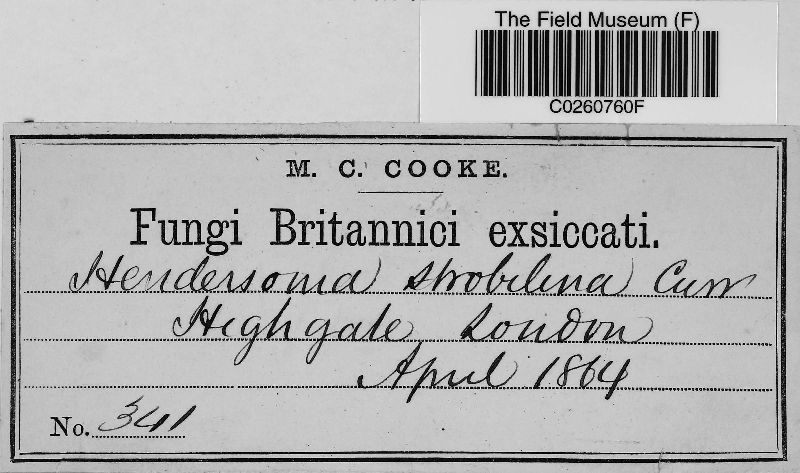 The Field Museum (F)
C0260760F
M. C. COOKE.
Fungi Britannici exsiccati.
Hendersonia strobilina Curr
Highgate London
April 1864
No. 341